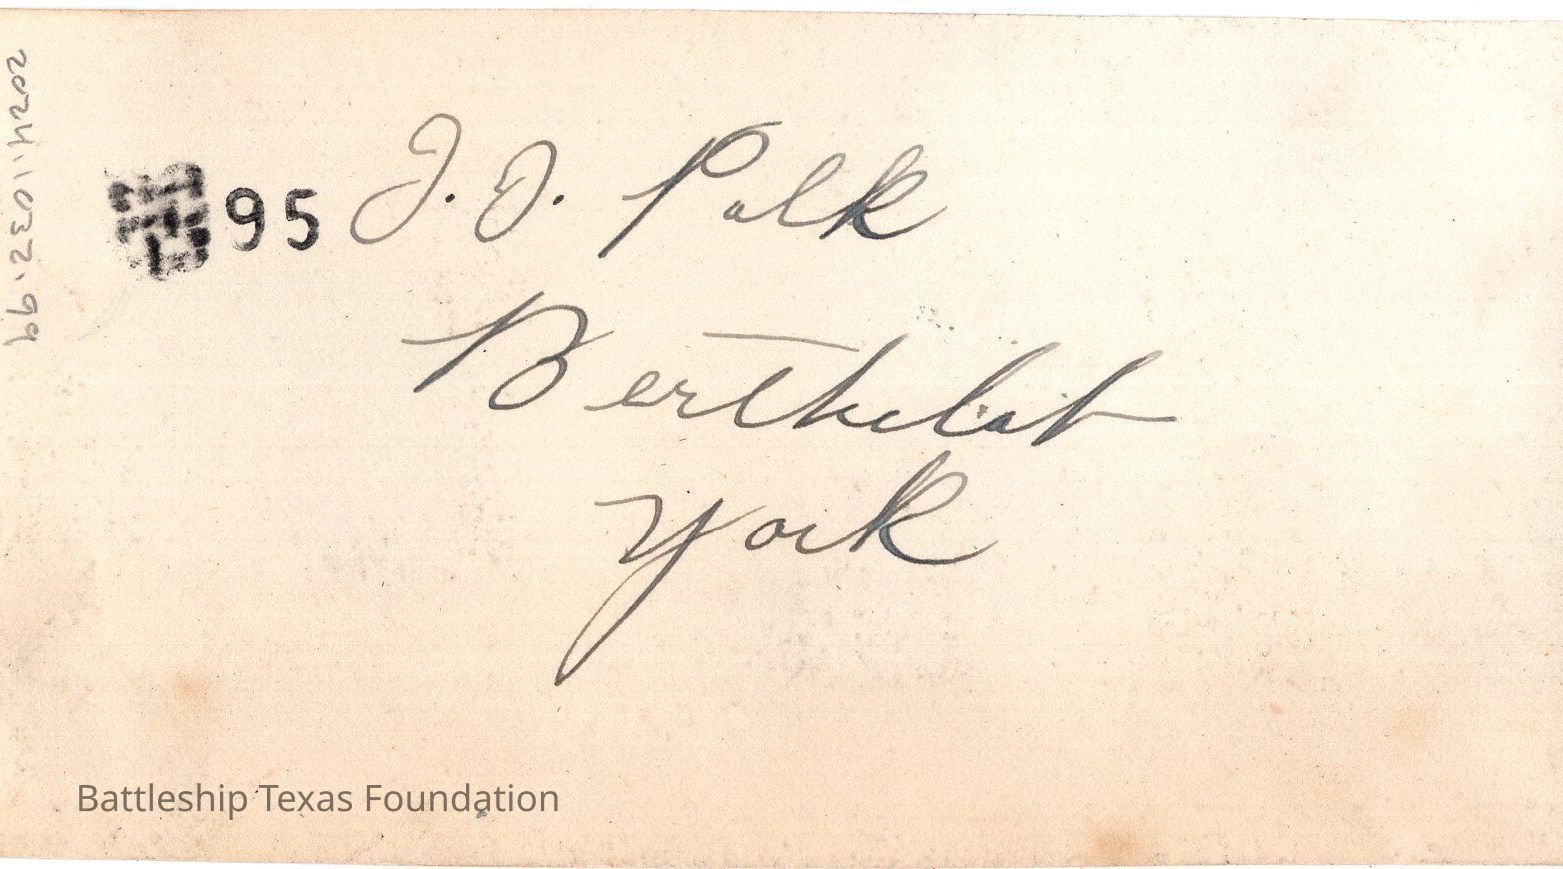 2024.1.032.99
95 J. J. Polk
Berthelot
York
Battleship Texas Foundation